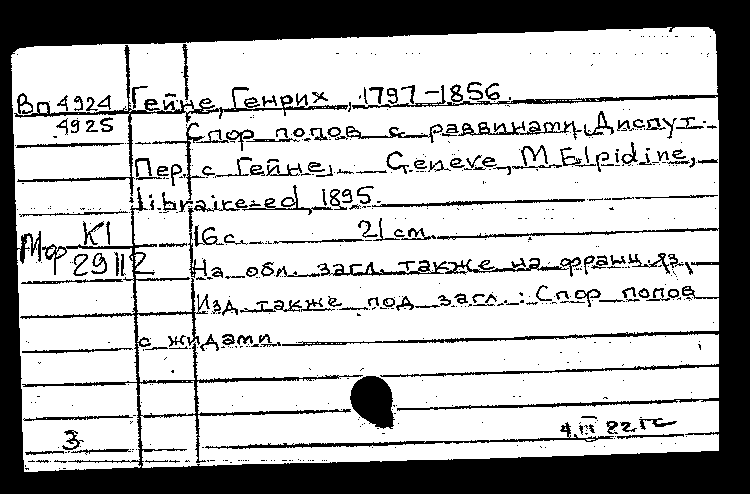 Вп4924 Гейне, Генрих, 1797-1856.
4925 Спор попов с раввинами, Диспут.
Пер. с Гейне, Geneve, M Elpidine,
libraire-ed, 1895.
Мф К1 16 с. 21 cm
29112 На обл. загл. также на франц. яз,
Изд. также под загл.: Спор попов
с жидами.
3 4. III 82